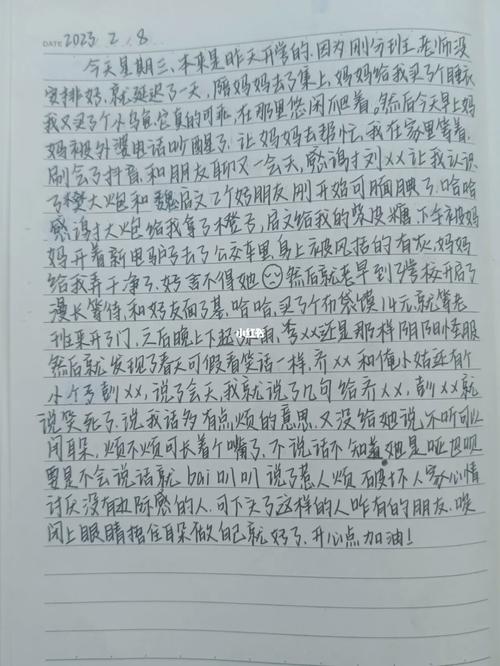 DATE 2023 2. 8
今天星期三、本来是昨天开学的、因为刚分班、老师没
安排好、就延迟了一天、陪妈妈去了集上、妈妈给我买了个睡衣
我又买了个小乌龟、它真的可乖、在那里悠闲爬着。然后今天早上妈
妈被外婆电话吵醒了、让妈妈去帮忙、我在家里等着、
刷会了抖音、和朋友聊了一会天、感谢刘xx让我认识
了樊大炮和魏启文2个好朋友、刚开始可腼腆了、哈哈
感谢大炮给我拿了橙子、启文给我的柴皮糖、下午被妈
妈开着新电驴去了公交车里、身上被风括的有灰、妈妈
给我弄干净了、好舍不得她 然后就老早到了学校开启了
漫长等待、和好友面了基、哈哈、买了个布袋馍14元、就等老
班来开了门、之后晚上下起了雨、李xx还是那样阴阳怪服
然后就发现了春天可假看笑话一样、乔xx和俺小姑还有个
小个子彭xx、说了会天、我就说了几句给乔xx、彭xx就
说笑死了、说我话多有点烦的意思、又没给她说、不听可以
闭耳朵、烦不烦可长着个嘴了、不说话不知道她是哑巴呗
要是不会说话就bai叭叭说了惹人烦 破坏人家心情
讨厌没有边际感的人、可下头了这样的人咋有的朋友、唉
闭上眼睛捂住耳朵做自己就好了、开心点加油！
小红书